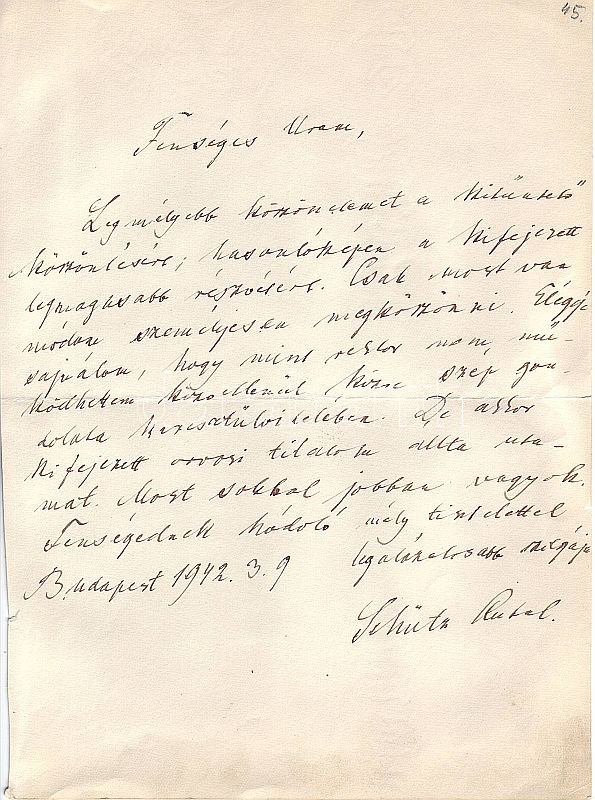 45.
Fenséges Uram,
Legmélyebb köszönetemet a kitüntető
köszöntésére; hasonlóképen a kifejezett
legmagasabb részvésére. Csak most van
módom személyesen megköszönni. Eléggé
sajnálom, hogy mint rektor nem mű-
ködhettem közvetlenül közre szép gon-
dolata keresztülvitelében. De akkor
kifejezett orvosi tilalom állta uta-
mat. Most sokkal jobban vagyok.
Fenségednek hódoló mély tisztelettel
legalázatosabb szolgája
Budapest 1942. 3. 9
Schütz Antal.